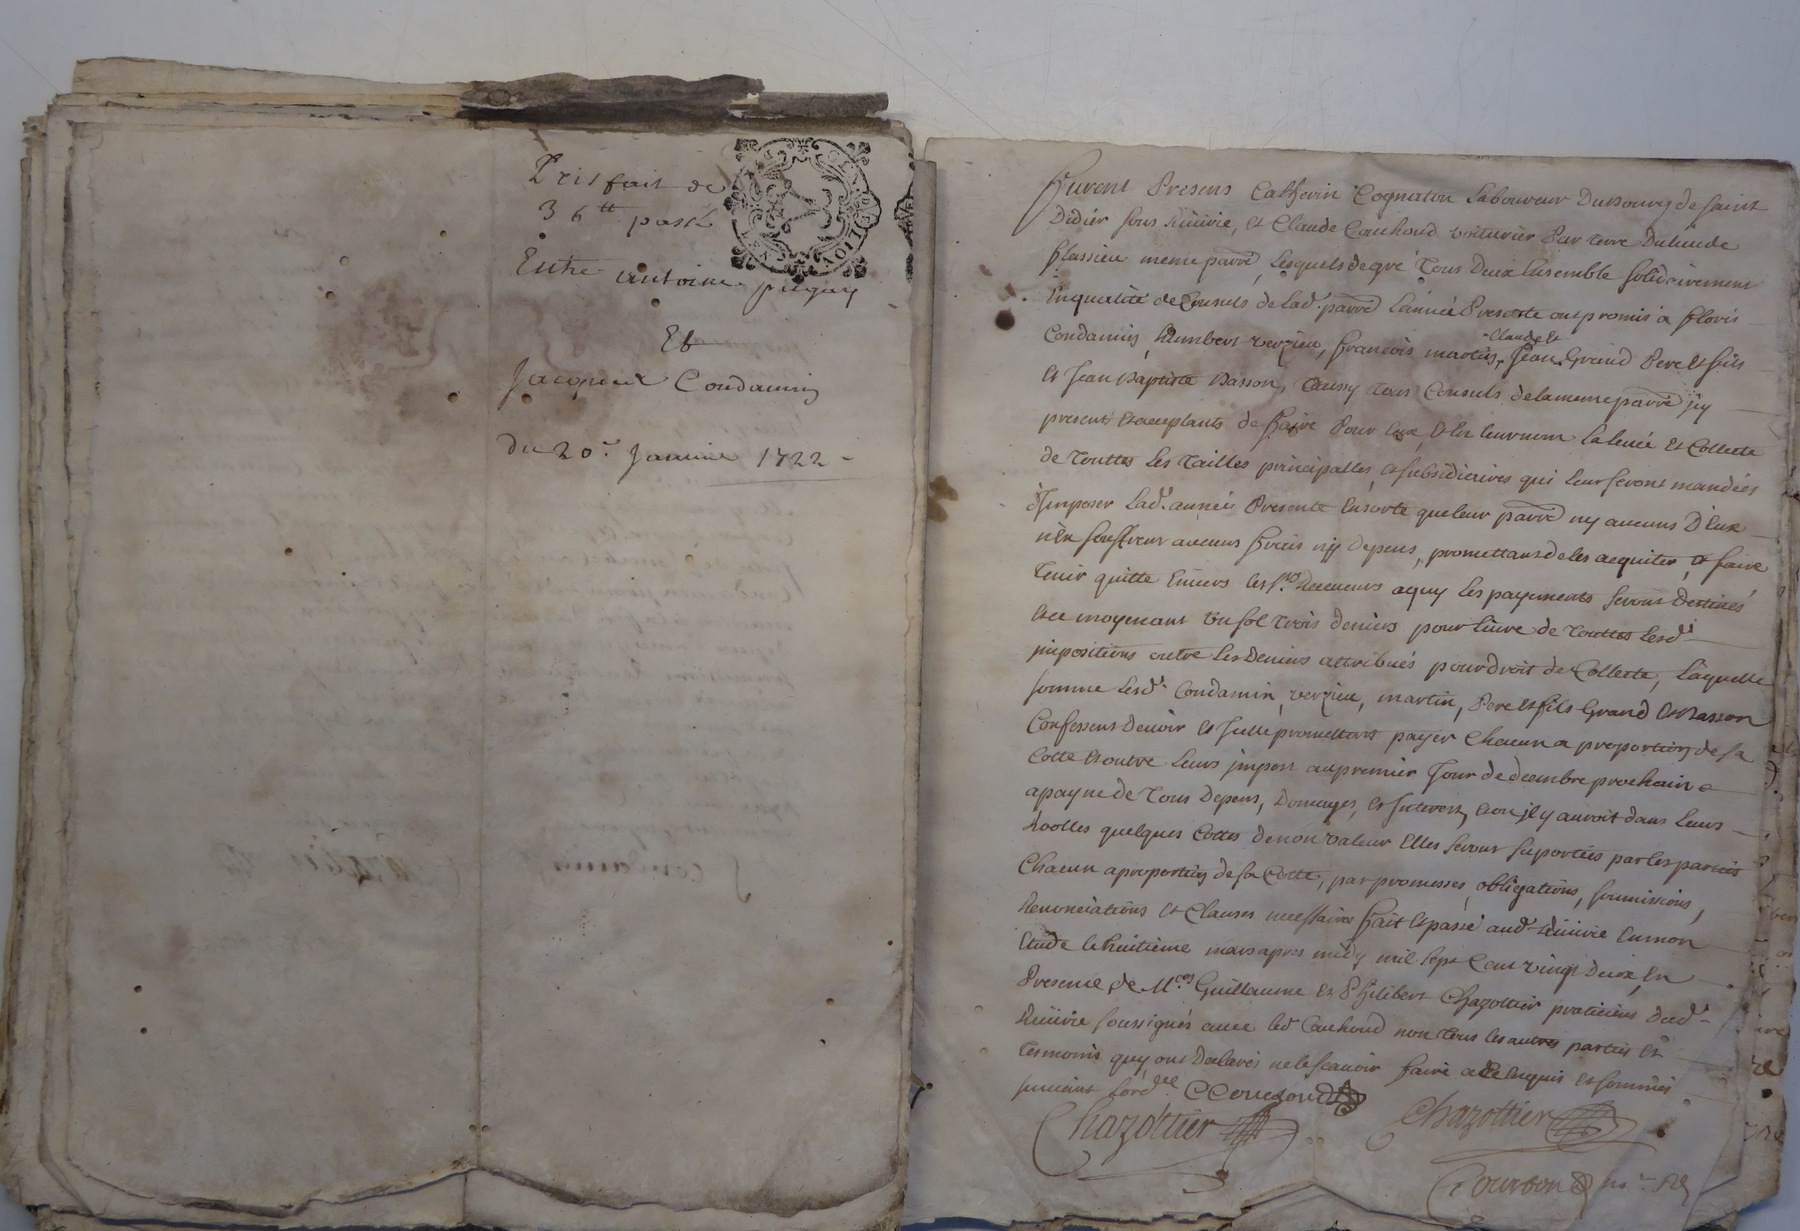 Prisfait de
36 tt passé
Entre Antoine
Et
Jacques Condamin
du 20e Janvier 1722
Furent Presens Catherin Cognaton Laboureur Dubourg de saint
Didier sous Riuirie, et Claude Couchoud voiturier Par terre Dulieude
flassieu meme parre, Lesquels de gré Tous Deux Ensemble solidairement
Enqualité de Consuls de Lad. parre Lannée Presente ont promis a floris
Condamin, Humbert verzieu, françois martin, Claude Et Jean Grand Pere et fils
et Jean Baptiste Basson, Taussy tous Consuls delamemeparre jcy
presents et aceptants de faire Pour Eux et En leur nom La leueé et Collecte
de Touttes Les Tailles principalles, et subsidiaires qui Leur seront mandées
d'Imposer Lad. année Presente Ensorte que leur parre ny aucuns D'Eux
n'En souffrent aucuns fraix ny Depens, promettans de les acquiter, et faire
Tenir quitte Enuers les srs. Receueurs aquy Les payements seront Destinés
et ce moyenant Un sol Trois deniers pour Liure de Touttes Lesd.
jmpositions outre Les Deniers attribués pour droit de Collecte, Laquelle
somme Lesd. Condamin, verzieu, martin, Pere et fils Grand et Basson
Confessent deuoir et promettent payer Chacun a proportion de sa
Cotte et outre Leurs jmpost au premier Jour de decembre prochain
a payne de Tous Depens, Domages, et Interets, et ou jl y auroit dans Leurs
Roolles quelques Cottes de non valeur Elles seront suportées par les parties
Chacun a proportion de sa Cotte, par promesses, obligations, soumissions,
Renonciations et Clauses necessaires fait et passé aud. Riuirie En mon
Etude le huitieme mars apres midy mil sept Cent vingt deux, En
Presence de Mes. Guillaume et Philibert Chazottier praticiens dud.
Riuirie soussignés auec led. Couchoud non tous les autres parties et
Tesmoins quy ont Declarés ne le scauoir faire de ce Enquis et sommés
suiuant lord.
Chazottier
Chazottier
Bourbon